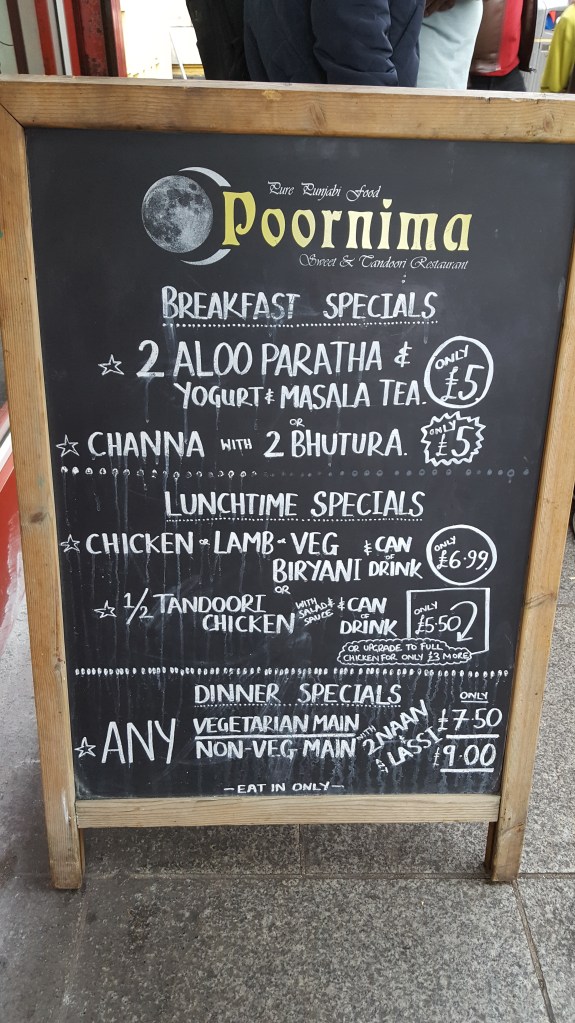 Pure Punjabi Food
Poornima
Sweet & Tandoori Restaurant
BREAKFAST SPECIALS
☆ 2 ALOO PARATHA & ONLY £5
YOGURT & MASALA TEA.
OR
☆ CHANNA WITH 2 BHUTURA. ONLY £5
LUNCHTIME SPECIALS
☆ CHICKEN OR LAMB OR VEG & CAN OF ONLY £6.99
BIRYANI DRINK
OR
☆ 1/2 TANDOORI WITH SALAD & & CAN OF ONLY £5.50
CHICKEN SAUCE DRINK
OR UPGRADE TO FULL
CHICKEN FOR ONLY £3 MORE
DINNER SPECIALS ONLY
☆ ANY VEGETARIAN MAIN WITH 2 NAAN £7.50
NON-VEG MAIN & LASSI £9.00
- EAT IN ONLY -